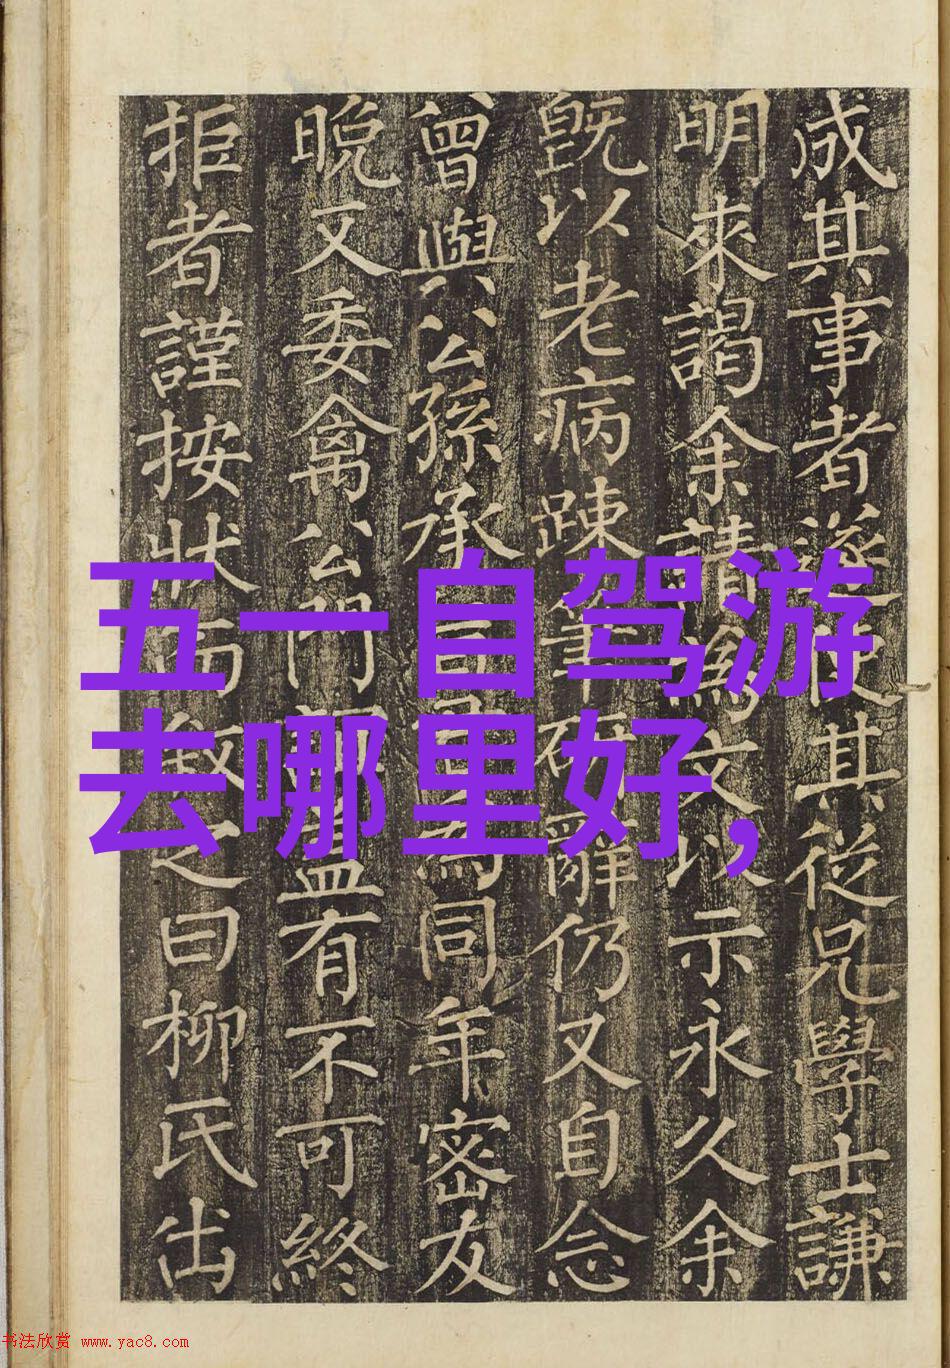 成其事者遂使其從兄學士謙
明來謁余請爲文以示永久余
旣以老病踈筆硯辭仍又自念
曾與公孫承爲同年密友
晚又委禽公門有不可終
拒者謹按狀而叙之曰柳氏出
五一自驾游
去哪里好,
书法欣赏 www.yac8.com